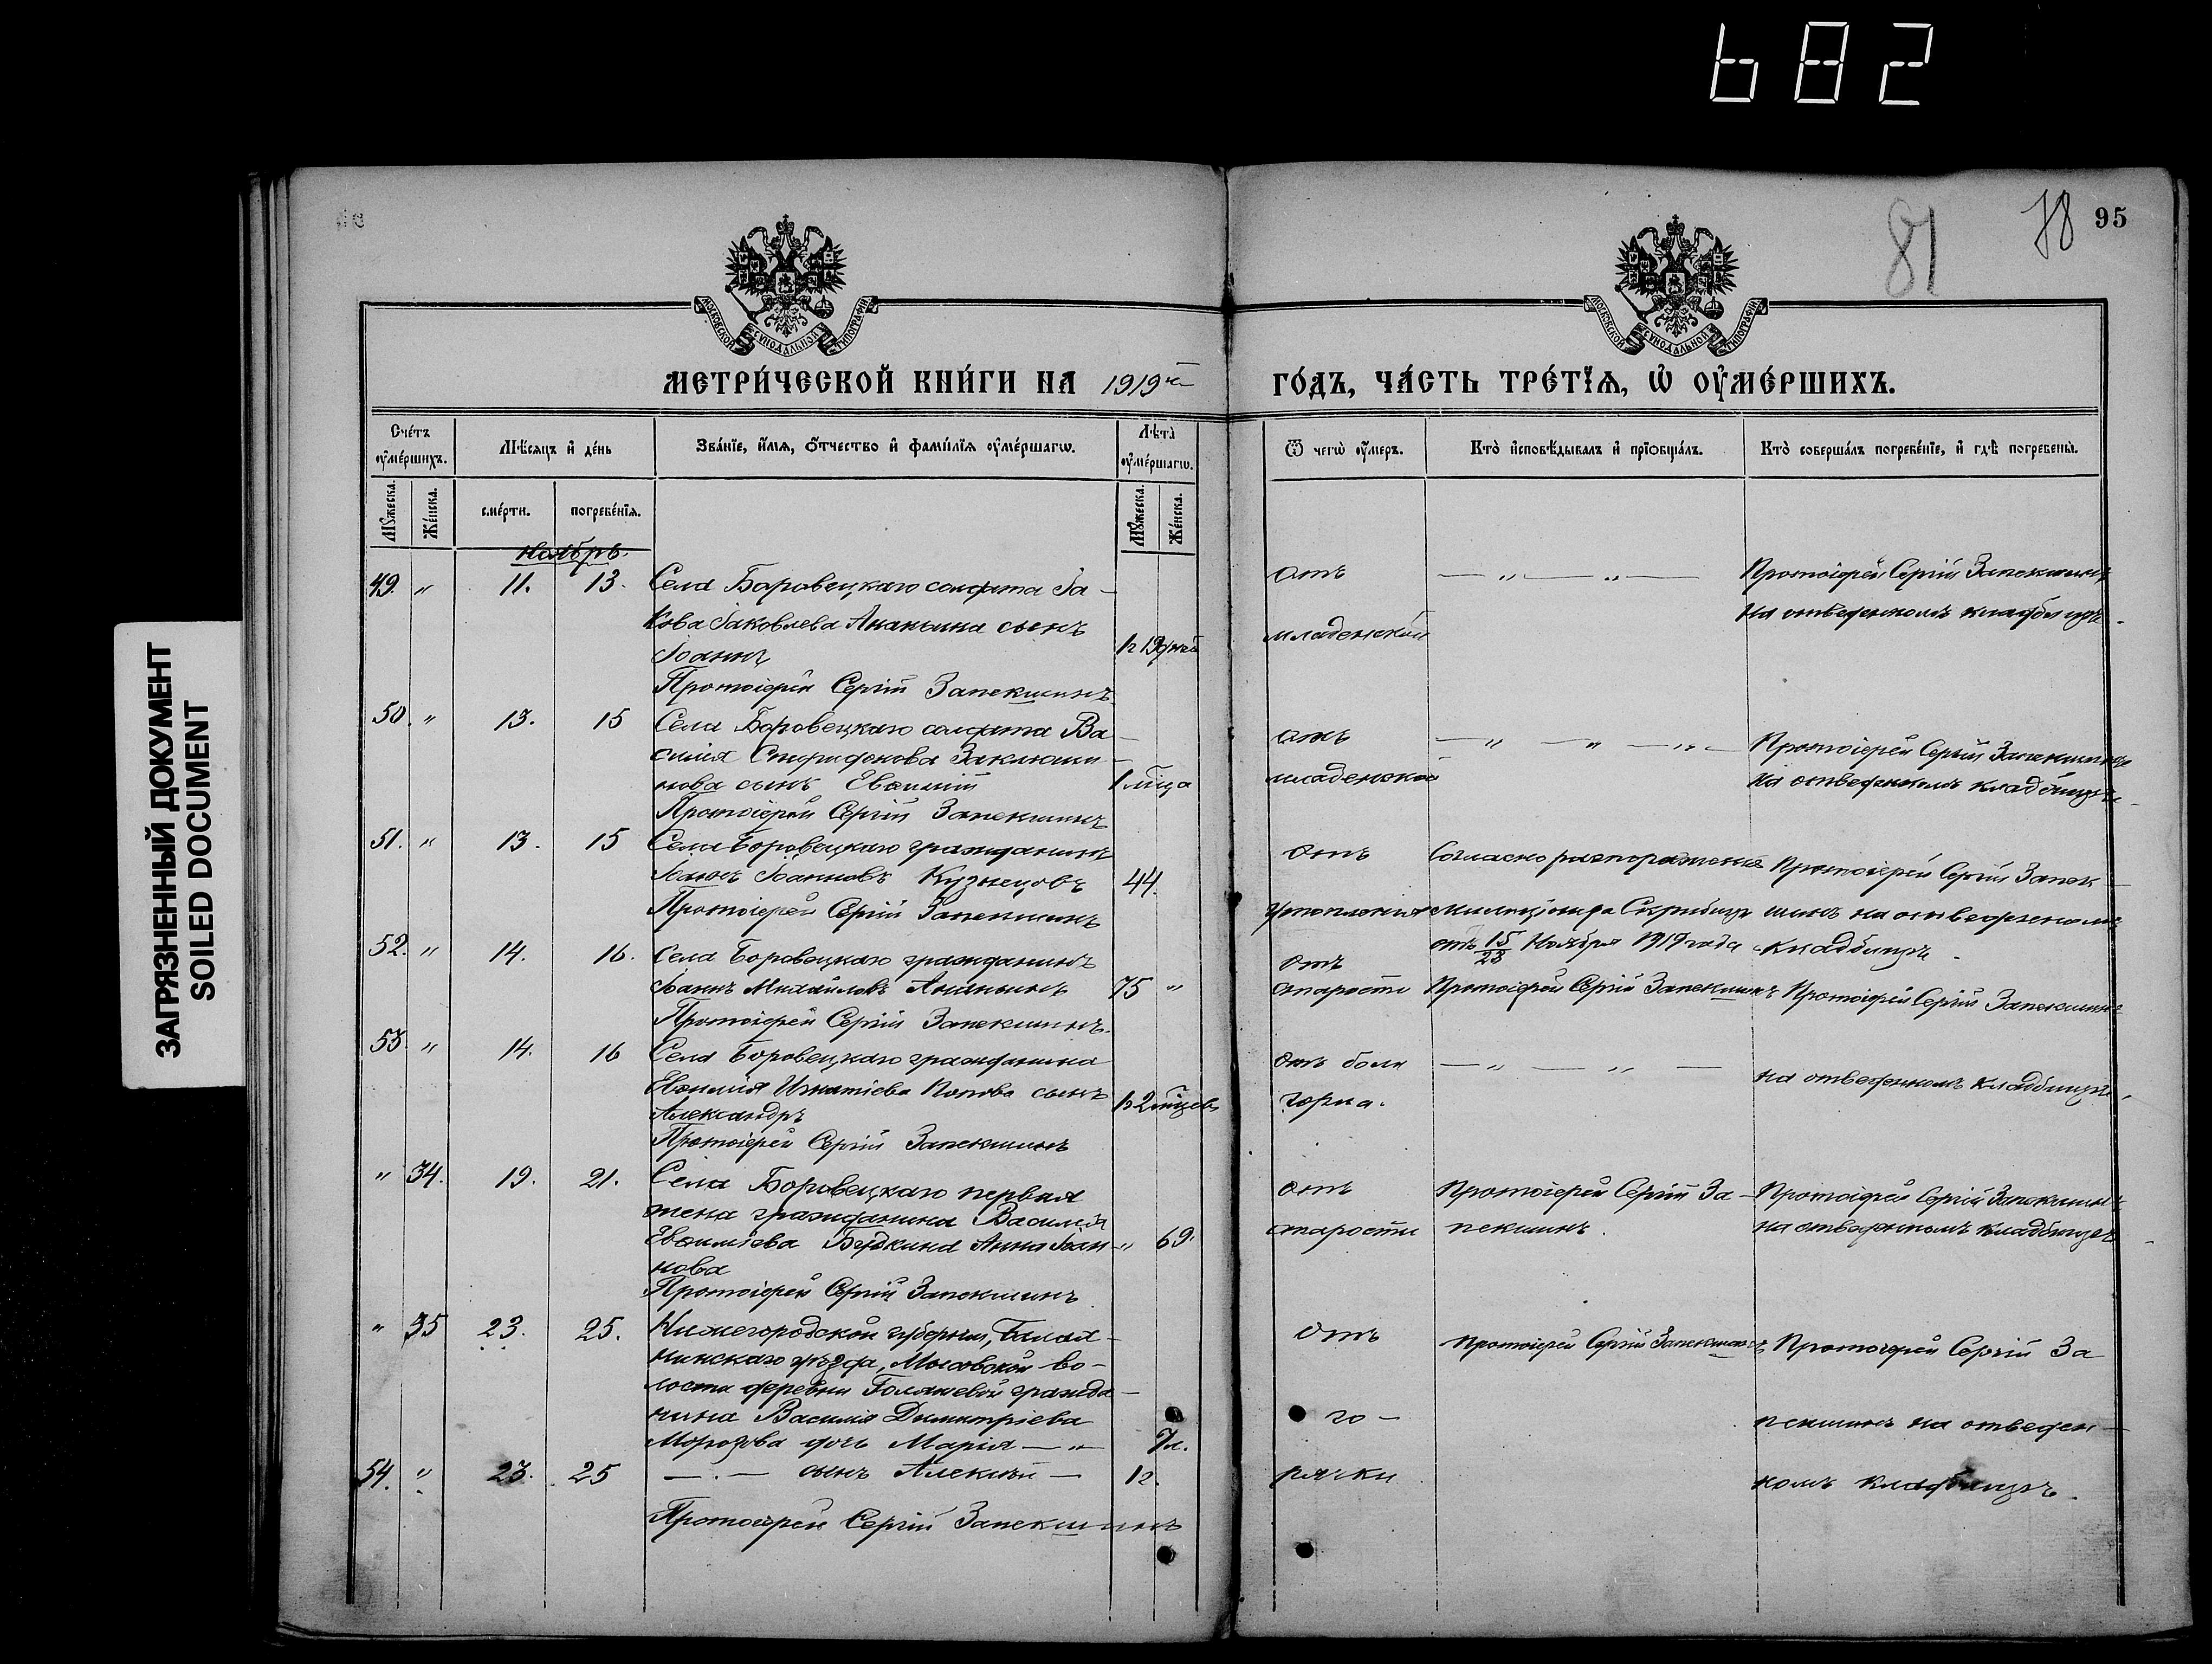 682
ЗАГРЯЗНЕННЫЙ ДОКУМЕНТ
SOILED DOCUMENT
81
78
95
МОСКОВСКОЙ СѴНОДАЛЬНОЙ ТИПОГРАФІИ
МОСКОВСКОЙ СѴНОДАЛЬНОЙ ТИПОГРАФІИ
МЕТРИ́ЧЕСКОЙ КНИ́ГИ НА 1919 й ГО́ДЪ, ЧА́СТЬ ТРЕ́ТЇѦ, Ѡ҆ ОУ҆МЕ́РШИХЪ.
Сче́тъ оу҆ме́ршихъ.
Мѣ́сяцъ и҆ де́нь
Зва́нїе, и҆́мя, ѻ҆́тчество и҆ фами́лїя оу҆ме́ршагѡ.
Лѣ́та оу҆ме́ршагѡ.
Ѿ чегѡ̀ оу҆́меръ.
Кто̀ и҆сповѣ́дывалъ и҆ прїѻбща́лъ.
Кто̀ соверша́лъ погребе́нїе, и҆ гдѣ̀ погребены̀.
Мꙋ́жеска.
Же́нска.
сме́рти.
погребе́нїя.
Мꙋ́жеска.
Же́нска.
Ноябрь.
49. " 11. 13. Села Боровецкаго солдата Іа-
кова Іаковлева Ананьина сынъ
Іоаннъ
Протоіерей Сергій Запекшинъ
19 дней
отъ
младенской
— " — " —
Протоіерей Сергій Запекшинъ
на отведенномъ кладбищѣ.
50. " 13. 15 Села Боровецкаго солдата Ва-
силія Спиридонова
нова сынъ Евѳимій
Протоіерей Сергій Запекшинъ
1 мѣца
отъ
младенской
— " — " — " —
Протоіерей Сергій Запекшинъ
на отведенномъ кладбищѣ.
51. " 13. 15 Села Боровецкаго гражданинъ
Іоаннъ Іоанновъ Кузнецовъ
Протоіерей Сергій Запекшинъ
44.
отъ
утопленія
Согласно распоряженія
милиціонера
отъ 15/28 Ноября 1919 года
Протоіерей Сергій Запек-
шинъ на отведенномъ
кладбищѣ.
52. " 14. 16. Села Боровецкаго гражданинъ
Іоаннъ Михайловъ Ананьинъ
Протоіерей Сергій Запекшинъ.
75 "
отъ
старости
Протоіерей Сергій Запекшинъ
Протоіерей Сергій Запекшинъ
53. " 14. 16 Села Боровецкаго гражданина
Евѳимія Игнатіева Попова сынъ
Александръ
Протоіерей Сергій Запекшинъ
2 мѣцевъ
отъ боли
горла.
— " — " —
на отведенномъ кладбищѣ.
" 34. 19. 21. Села Боровецкаго первая
жена гражданина Василія
Евѳиміева Будкина Анна Іоан-
нова
Протоіерей Сергій Запекшинъ
" 69.
отъ
старости
Протоіерей Сергій За-
пекшинъ.
Протоіерей Сергій Запекшинъ
на отведенномъ кладбищѣ
" 35 23. 25. Нижегородской губерніи, Балах-
нинскаго уѣзда, во-
лости деревни гражда-
нина Василія Димитріева
Морозова дочь Марія — " —
7 л.
отъ
го-
рячки
Протоіерей Сергій Запекшинъ
Протоіерей Сергій За
пекшинъ на отведен-
номъ кладбищѣ.
54. " 23. 25 — . — сынъ Алексѣй —
1 г.
Протоіерей Сергій Запекшинъ